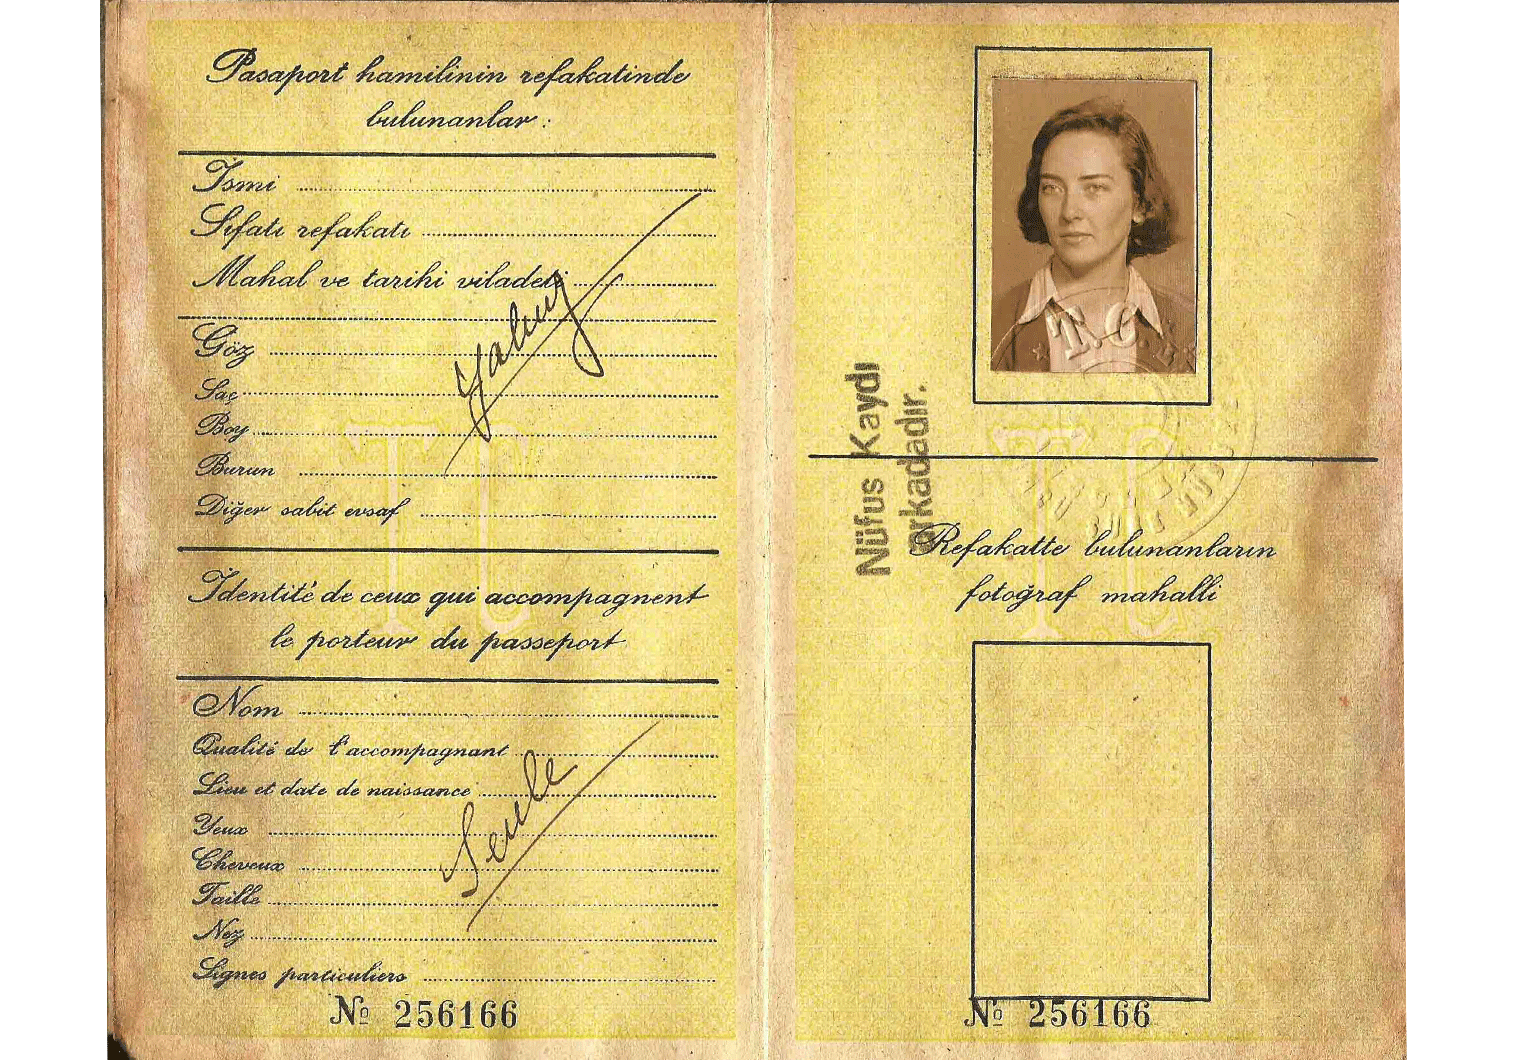 Pasaport hamilinin refakatinde
bulunanlar :
İsmi
Sıfatı refakatı
Mahal ve tarihi viladeti
Göz
Saç
Boy
Burun
Diğer sabit evsaf
Yalnız
İdentité de ceux qui accompagnent
le porteur du passeport
Nom
Qualité de l'accompagnant
Lieu et date de naissance
Yeux
Cheveux
Taille
Nez
Signes particuliers
Seule
№ 256166
T. C.
Nüfus Kaydı
arkadadır.
T C
Refakatte bulunanların
fotoğraf mahalli
№ 256166